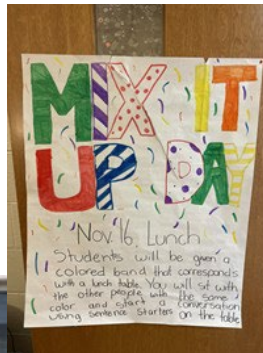 MIX IT
UP DAY
Nov. 16, Lunch
Students will be given a
colored band that corresponds
with a lunch table. You will sit with
the other people with the same
color and start a conversation
using sentence starters on the table